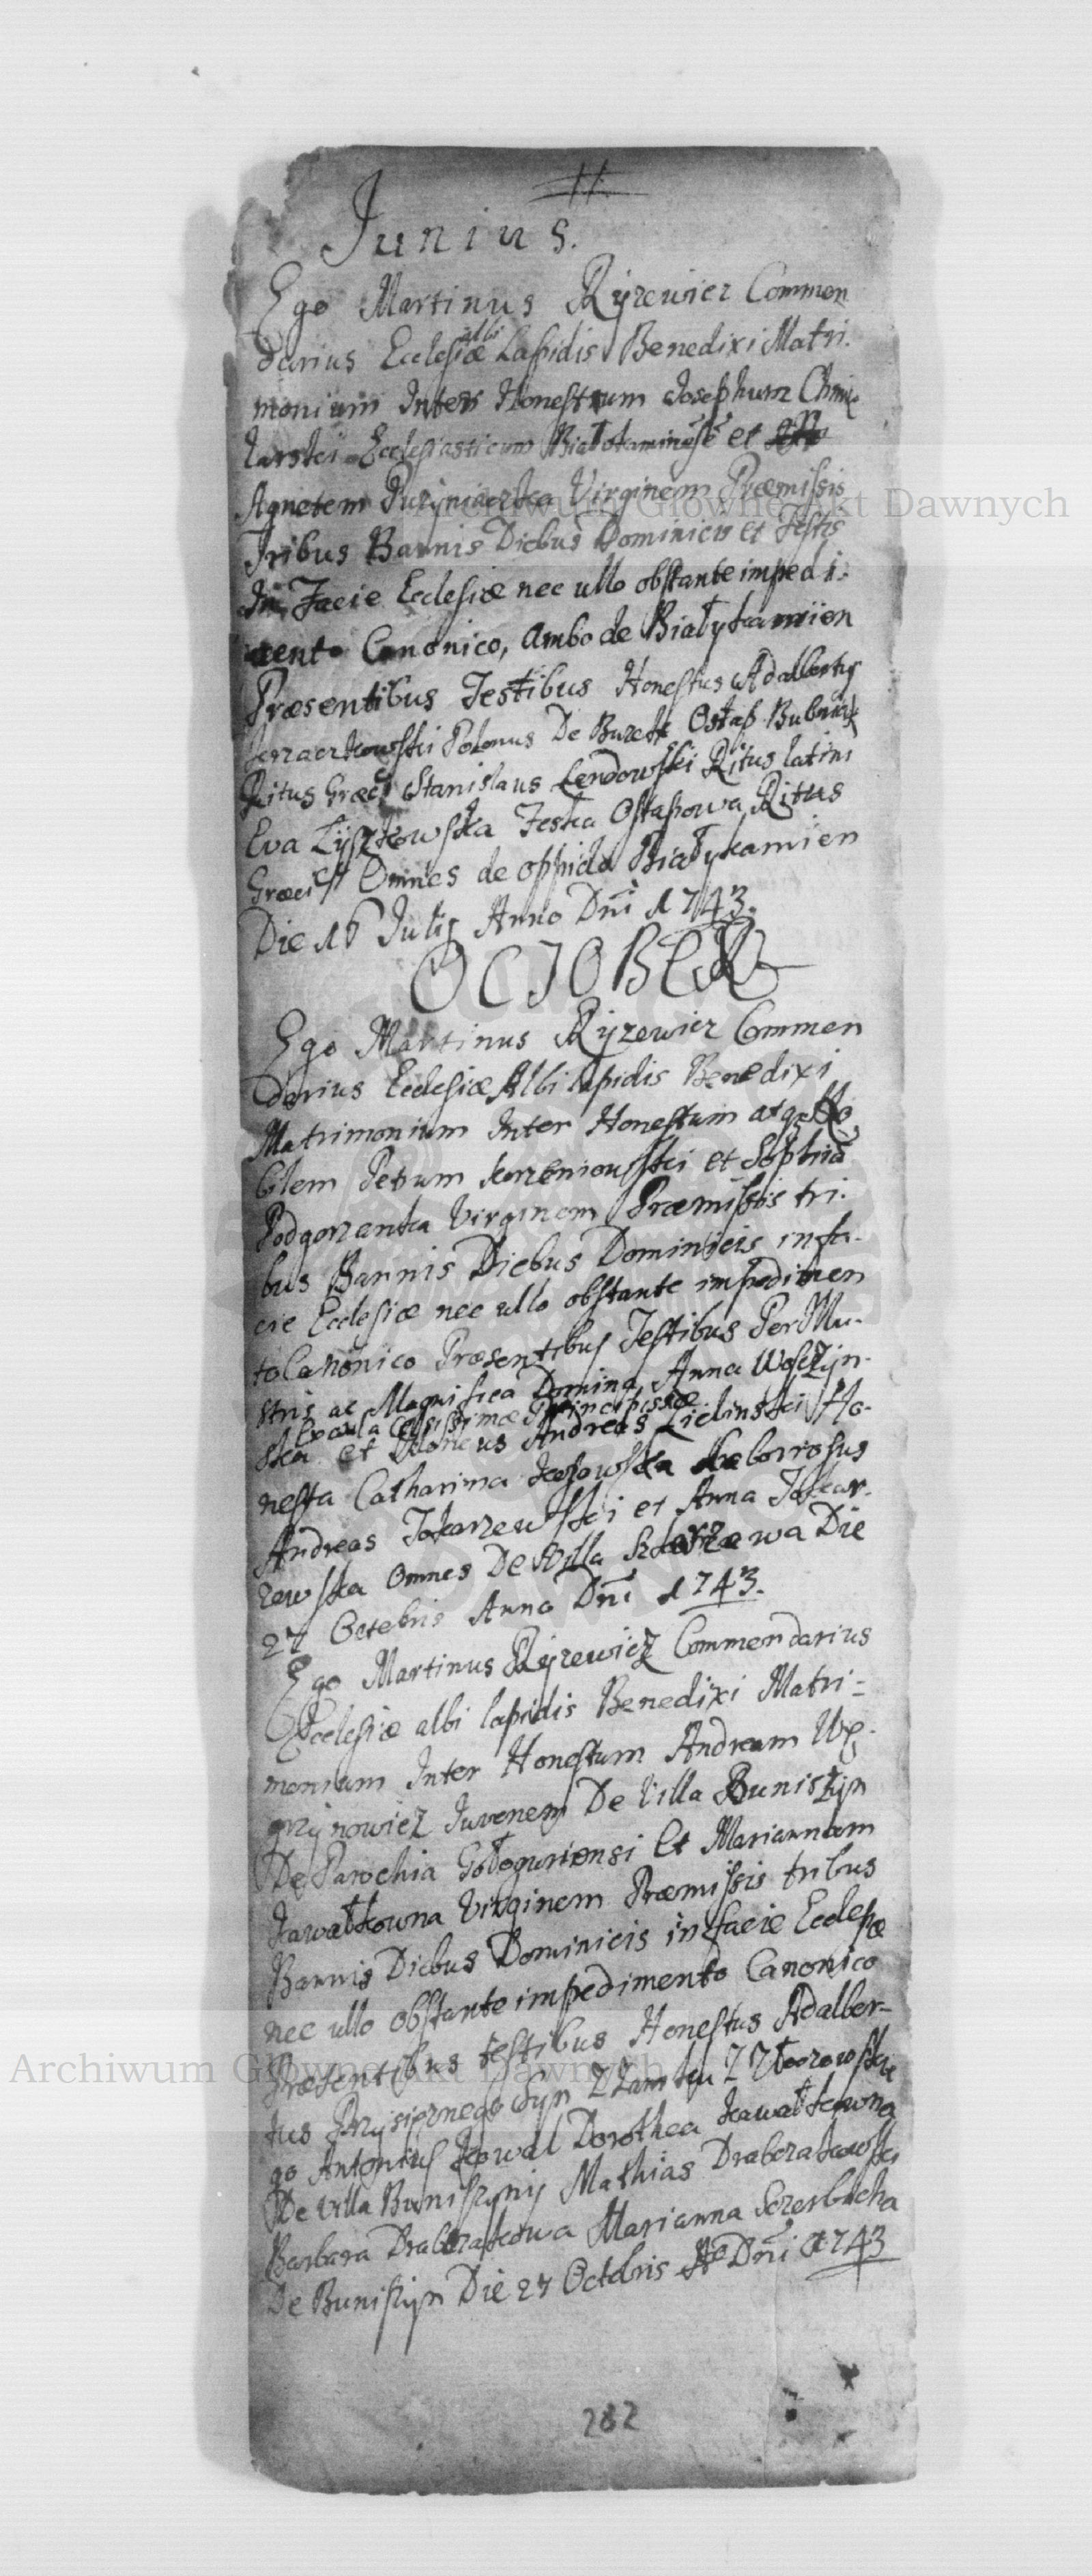 Junius.
Ego Martinus Ryzewicz Commen
darius Ecclesiæ albi Lapidis Benedixi Matri.
monium Inter Honestum Josephum
Ecclesiasticum et
Agnetem Virginem Præmissis
Tribus Bannis Diebus Dominicis et Festis
In Facie Ecclesiæ nec ullo obstante impedi.
mento Canonico, ambo de Białykamien
Præsentibus Testibus Honestus Adalbertus
Polonus De Ostap
Ritus Græci Stanislaus Lendowski Ritus latini
Eva Zyszkowska Ostapowa Ritus
Græci Omnes de oppido Białykamien
Die 16 Julij Anno Dñi 1743.
OCTOBER
Ego Martinus Ryzewicz Commen
darius Ecclesiæ Albi lapidis Benedixi
Matrimonium Inter Honestum atqz No
bilem Petrum Korzeniowski et Sophiã
Podgorzanka Virginem Præmissis tri.
bus Bannis Diebus Dominicis in fa.
cie Ecclesiæ nec ullo obstante impedimen
to Canonico Præsentibus Testibus Per Illu.
stris ac Magnifica Domina Anna Woszczyn.
ex aula Celsissimæ Principissæ
ska et Andreas Zielinski Ho.
nesta Catharina Laborrosus
Andreas Tokarzewski et Anna Tokar.
zewska Omnes De Villa Die
27 Octobris Anno Dñi 1743.
Ego Martinus Ryzewicz Commendarius
Ecclesiæ albi lapidis Benedixi Matri=
monium Inter Honestum Andream Wę.
grzynowicz Juvenem De Villa Buniszyn
De Parochia Gołoguriensi Et Mariannam
Kawałkowna Virginem Præmissis tribus
Bannis Diebus Dominicis in facie Ecclesiæ
nec ullo obstante impedimento Canonico
Præsentibus testibus Honestus Adalber=
tus Przysięznego Syn Z Zamku Z
go Antonius Kowal Dorothea Kawałkowna
De Villa Buniszyny Mathias Drabczakowski
Barbara Drabczakowa Marianna Szerbicha
De Buniszyn Die 27 Octobris Dñi 1743
282
Archiwum Główne Akt Dawnych
Archiwum Główne Akt Dawnych